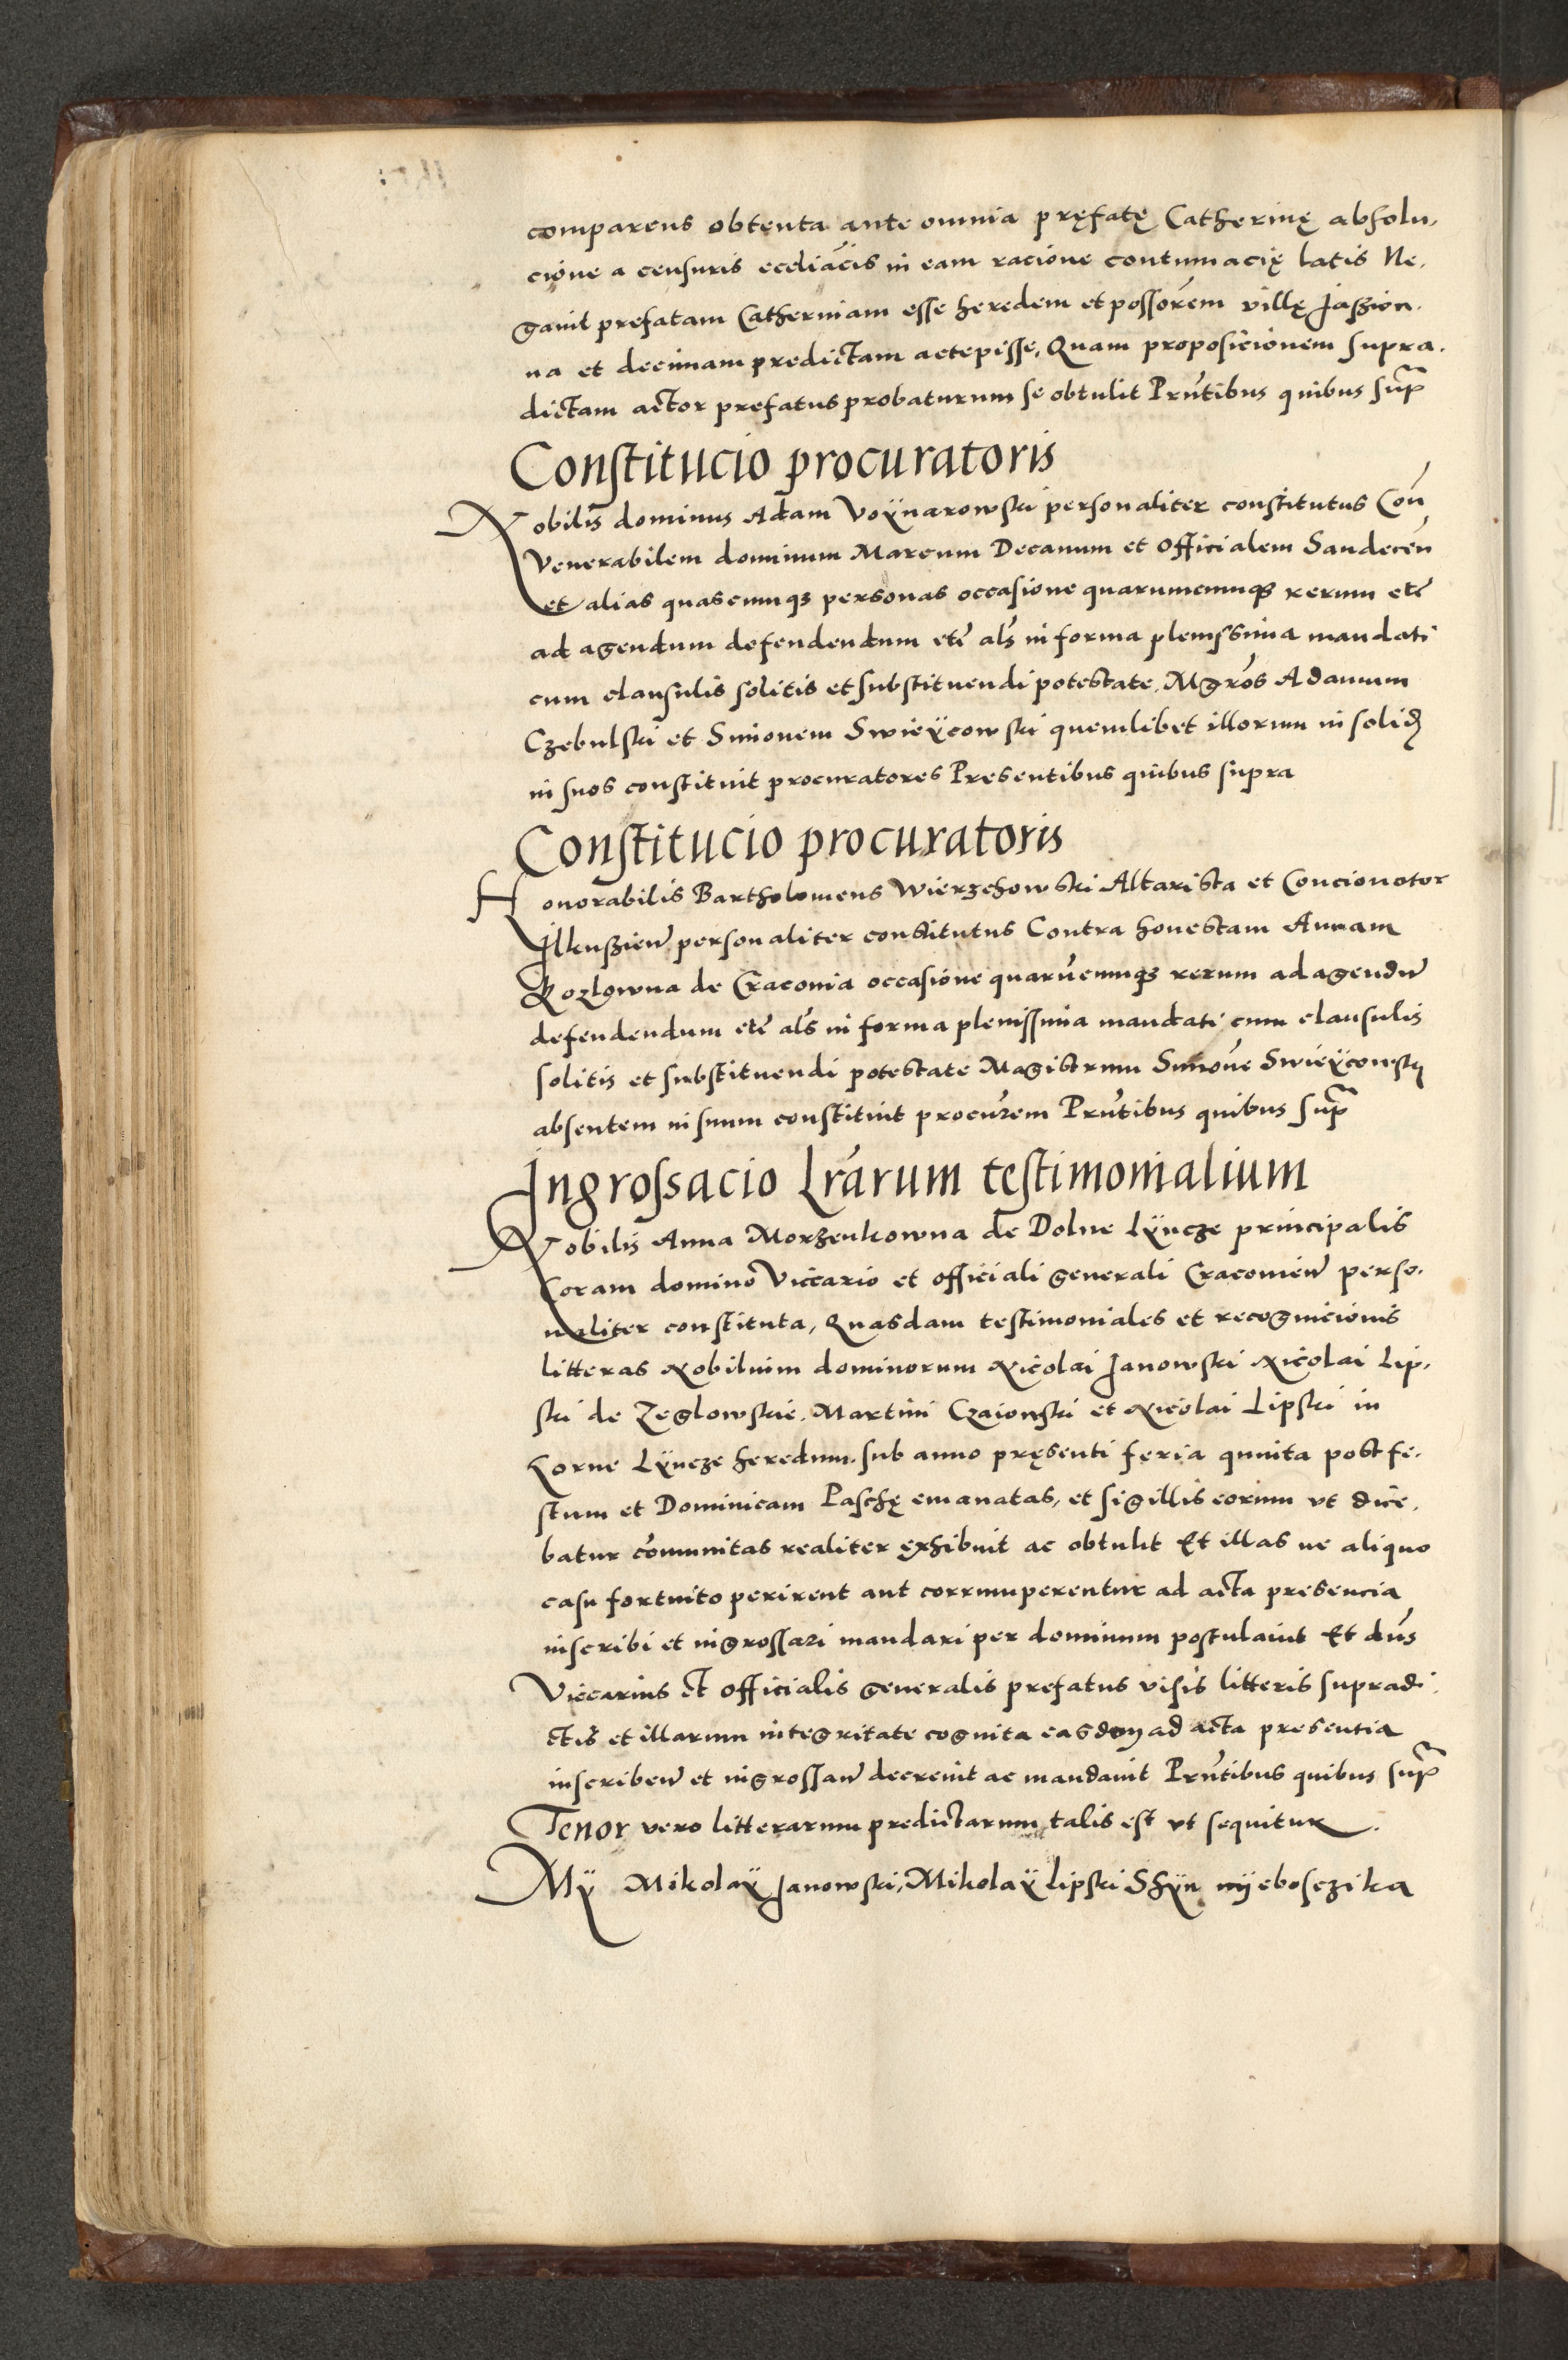 comparens obtenta ante omnia pręfatę Catherinę absolu,
cione a censuris eccliacis in eam racione contumacię latis Ne,
gauit prefatam Catherinam esse heredem et possorem villę Jaszion,
na et decimam predictam accepisse, Quam proposicionem supra,
dictam actor prefatus probaturum se obtulit Prntibus quibus sup
Constitucio procuratoris
Nobilis dominus Adam Voÿnarowski personaliter constitutus Con
Venerabilem dominum Marcum Decanum et Officialem Sandecen
et alias quascunqz personas occasione quarumcunqz rerum etc
ad agendum defendendum etc als in forma plenissima mandati
cum clausulis solitis et substituendi potestate, Mgros Adamum
Czebulski et Simonem Swieÿcowski quemlibet illorum in solid
in suos constituit procuratores Presentibus quibus supra
Constitucio procuratoris
Honorabilis Bartholomeus Wierzchowski Altarista et Concionator
Ilkuszien personaliter constitutus Contra honestam Annam
Kozlowna de Cracouia occasione quarumcunqz rerum ad agendum
defendendum etc als in forma plenissima mandati cum clausulis
solitis et substituendi potestate Magistrum Simone Swieÿcowski
absentem in suum constituit procurem Prntibus quibus sup
Ingrossacio Lrarum testimonialium
Nobilis Anna Morzenkowna de Dolne Lÿncze principalis
Coram domino Viccario et officiali generali Cracouien perso,
naliter constituta, Quasdam testimoniales et recognicionis
litteras Nobilium dominorum Nicolai Janowski Nicolai Lip,
ski de Zeglowskie, Martini Czaiowski et Nicolai Lipski in
Gorne Lÿncze heredum, sub anno pręsenti feria quinta post fe,
stum et Dominicam Paschę emanatas, et sigillis eorum vt dice,
batur comunitas realiter exhibuit ac obtulit Et illas ne aliquo
casu fortuito perirent aut corrumperentur ad acta presencia
inscribi et ingrossari mandari per dominum postulauit Et dns
Viccarius et officialis generalis prefatus visis litteris supradi,
ctis et illarum integritate cognita easdem ad acta presentia
inscriben et ingrossan decreuit ac mandauit Prntibus quibus sup
Tenor vero litterarum predictarum talis est vt sequitur.
Mÿ Mikolaÿ Janowski, Mikolaÿ Lipski Shÿn nÿeboszika